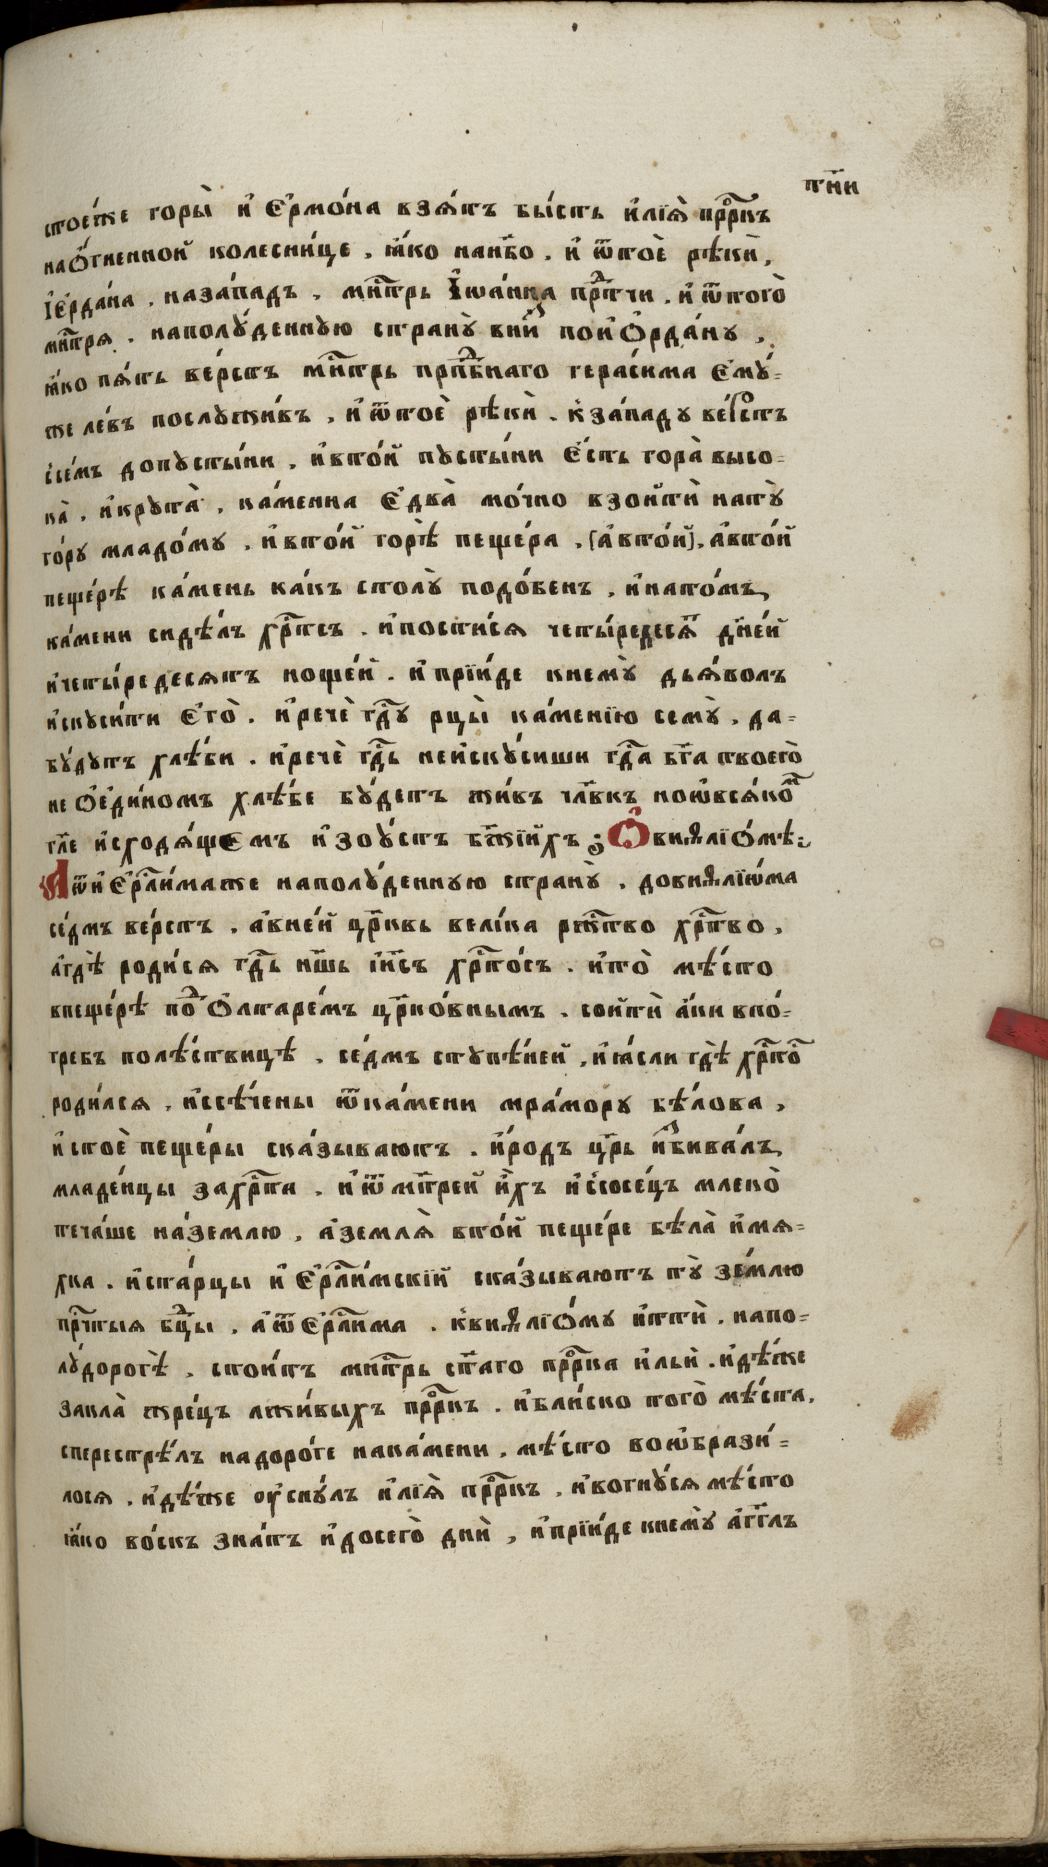 тп҃и
стое́тже горы̀ и҆ Є҆рмо́на взя́тъ бы́сть и҆лїѧ̀ прⷪ҇ркъ
наѻ҆́гненной колесни́це . ꙗ҆́ко нанб҃о . и҆ ѿтоѐ рѣки̑ ,
І҆є҆рда́на . наза́падъ . мн҃трь І҆ѡа́нна прⷣтчи . и҆ ѿтого̀
мн҃тря . наполꙋ́деннꙋю странꙋ̀ вни́з пои҆ѻ҆рда́нꙋ ,
ꙗ҆́ко пя́ть ве́рстъ мн҃трь прпⷣбнаго гера́сима Є҆мꙋ́=
же ле́въ послꙋжи́въ , и҆ ѿтоѐ рѣкѝ . к за́падꙋ ве́рстъ
се́мъ допꙋсты́ни , и҆вто́й пꙋсты́ни Є҆́сть гора̀ высо=
ка̀ . и҆крꙋта̀ , ка́менна Є҆два̀ мо́чно взойтѝ натꙋ̀
го́рꙋ младо́мꙋ . и҆вто́й горѣ̀ пеще́ра , [а҆вто́й], а҆вто́й
пеще́рѣ ка́мень ка́къ столꙋ̀ подо́бенъ , и҆нато́мъ
ка́мени сидѣ́лъ хрⷭ҇тсъ . и҆пости́ся четы́редеся́т дн҃е́й
и҆четы́редесятъ ноще́й . и҆ прїи́де кнемꙋ̀ дья́волъ
и҆скꙋси́ти Є҆го̀ . и҆речѐ гдⷭ҇ꙋ рцы̀ ка́менїю семꙋ̀ , да=
бꙋ́дꙋтъ хлѣ́би . и҆речѐ гдⷭ҇ь неи҆скꙋ́сиши гдⷭ҇а бг҃а твоего̀
не ѻ҆є҆ди́номъ хлѣ́бе бꙋ́детъ жи́въ чл҃вкъ ноѡ҆вся́комъ
гл҃е и҆сходя́щемъ и҆зоу́стъ бж҃їихъ ; Ѽвиѳлїѻ́мѣ :
А҆ ѿи҆Є҆рⷭ҇ли́маже наполꙋ́деннꙋю странꙋ̀ . довиѳлїѡма
се́дмъ ве́рстъ , а҆вне́й цр҃ковь вели́ка ржⷭ҇тво хрⷭ҇тво ,
а҆гдѣ̀ роди́ся гдⷭ҇ь нш҃ь і҆и҃съ хрⷭ҇то́съ . и҆то̀ мѣ́сто
впеще́рѣ поⷣ ѻ҆лтаре́мъ цр҃ко́внымъ . сойтѝ а҆́ки впо́=
гребъ полѣ́ствицѣ . се́дмъ стꙋпе́ней , и҆ꙗ҆́сли гдѣ̀ хрⷭ҇то́с
роди́лся , и҆ссѣ́чены ѿка́мени мра́морꙋ бѣ́лова ,
и҆ стоѐ пеще́ры ска́зываютъ . и҆́родъ цр҃ь и҆з̾бива́лъ
младе́нцы захрⷭ҇та . и҆ ѿ мт҃рей и҆́хъ и҆ссосе́цъ млеко̀
теча́ше на́землю , а҆землѧ̀ вто́й пеще́ре бѣла̀ и҆мя=
хка . и҆ста́рцы и҆ Є҆рⷭ҇ли́мскїй ска́зываютъ тꙋ̀ зе́млю
прⷭ҇чтыя бцⷣы . а҆ ѿЄ҆рⷭ҇лима . к̾виѳлїѻ́мꙋ и҆ттѝ . напо=
лꙋ́дорогѣ . стои́тъ мн҃трь ст҃аго прⷪ҇рка и҆льѝ . и҆дѣ́же
закла̀ жре́цъ лжи́выхъ прⷪ҇ркъ . и҆бли́ско того̀ мѣ́ста ,
сперестрѣ́лъ надоро́ге нака́мени . мѣ́сто воѡ҆брази́=
лося . и҆дѣ́же оу҆снꙋ́лъ и҆лїѧ̀ прⷪ҇ркъ . и҆вогнꙋ́ся мѣ́сто
ꙗ҆́ко во́скъ зна́тъ и҆досего̀ днѝ , и҆прїи́де кнемꙋ̀ а҆́гг҃лъ